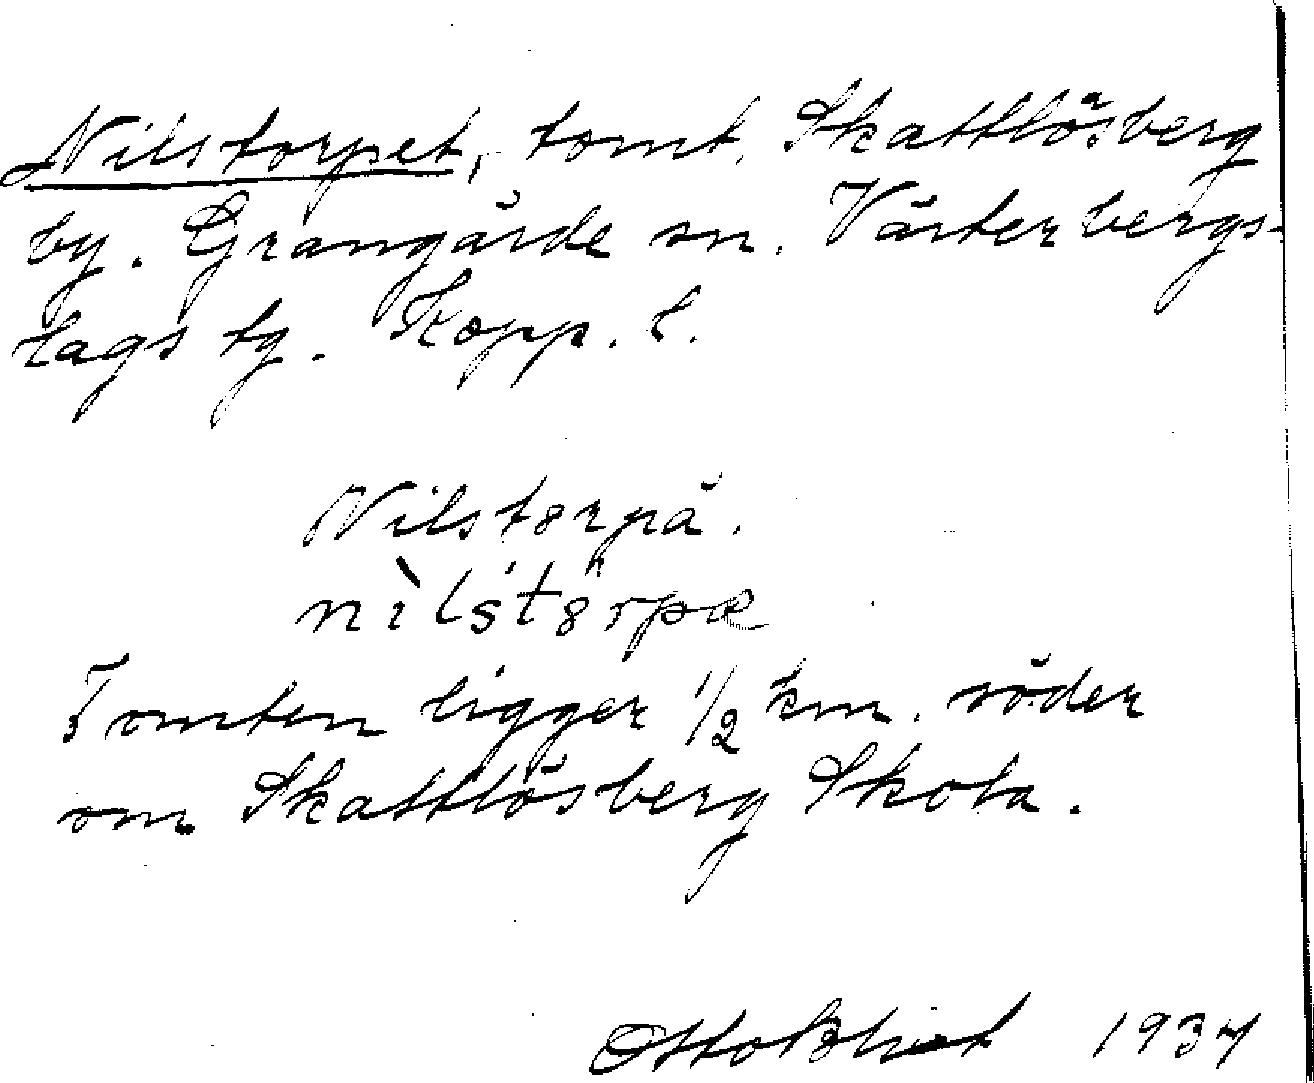 Nilstorpet, tomt, Skattlösberg
by. Grangärde sn. Västerbergs-
lags tg. Kopp. l.
Nilstorpä.
Tomten ligger 1/2 km. söder
om Skattlösberg Skola.
Otto Blixt 1934